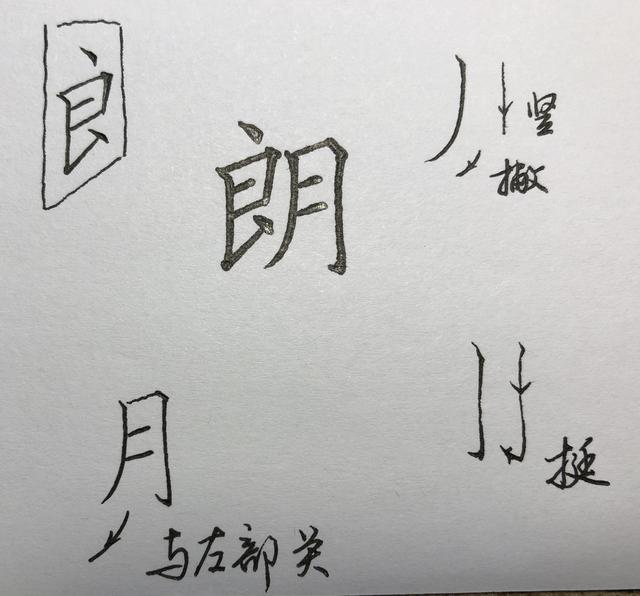 良
朗
竖
撇
挺
月
与左部关